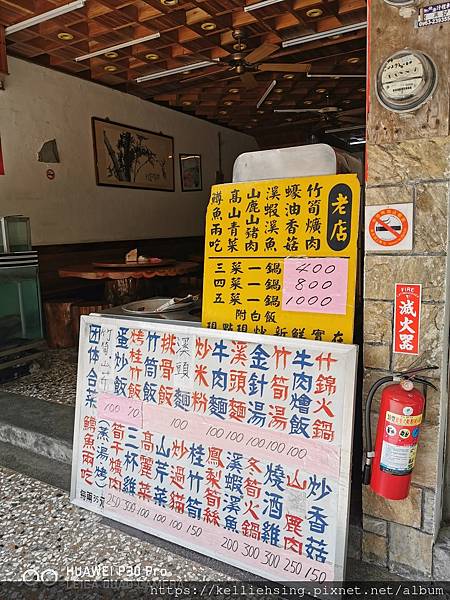 老店
竹筍爌肉
蠔油香菇
溪蝦溪魚
山鹿山豬肉
高山青菜
鱒魚兩吃
三菜一鍋 400
四菜一鍋 800
五菜一鍋 1000
附白飯
現點現炒新鮮實在
什錦火鍋
牛肉燴飯
竹筍湯
金針湯
溪頭麵
牛肉麵
炒米粉
排骨飯
竹筒飯
蛋炒飯
团体合菜
100 70 100 100 100 100 100
炒香菇
山鹿肉
燒酒雞
冬筍火鍋
溪蝦溪魚
桂竹筍絲
炒過貓
山芹菜
高麗菜
三杯雞
筍干爌肉
鱒魚(蒸.湯.烤)
250 300 100 150 100 150
200 300 300 250 150
滅火器
HUAWEI P30 Pro
LEICA QUAD CAMERA
https://kelliehsing.pixnet.net/album